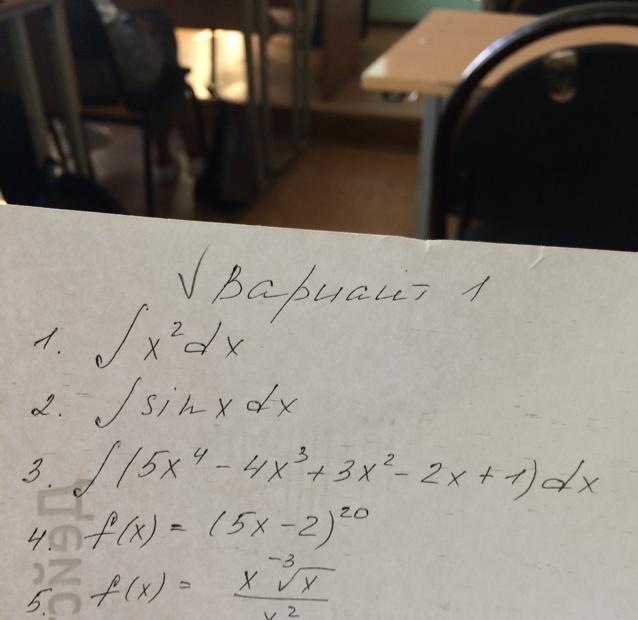 √ Вариант 1
1. ∫ x² dx
2. ∫ sin x dx
3. ∫ (5x⁴ - 4x³ + 3x² - 2x + 1) dx
4. f(x) = (5x - 2)²⁰
5. f(x) = x ⁻³√x / x²
Дейс